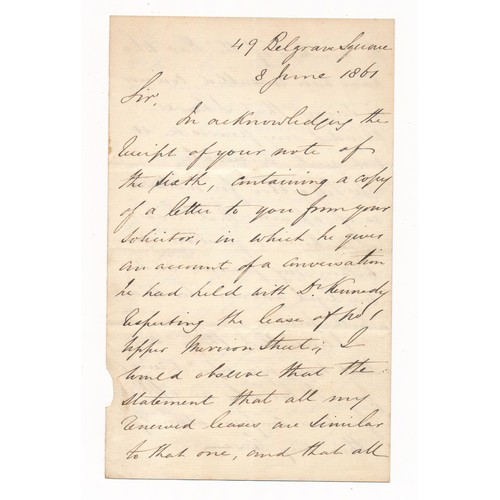 49 Belgrave Square
8 June 1861
Sir,
In acknowledging the
receipt of your note of
the sixth, containing a copy
of a letter to you from your
solicitor, in which he gives
an account of a conversation
he had held with Dr Kennedy
respecting the lease of No 1
Upper Merrion Street; I
would observe that the
statement that all my
renewed leases are similar
to that one, and that all